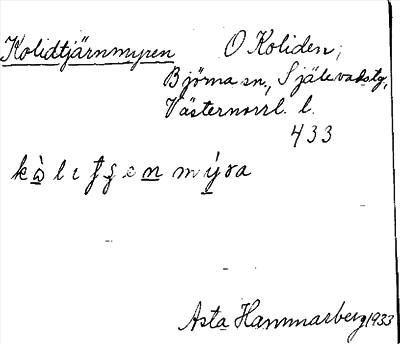 Kolidtjärnmyren O Koliden;
Björna sn., Själevadstg,
Västernorrl. l.
433
Asta Hammarberg 1933